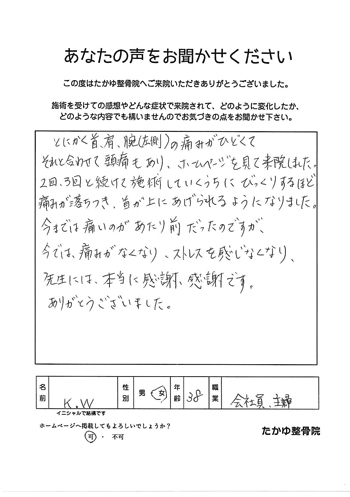 あなたの声をお聞かせください
この度はたかゆ整骨院へご来院いただきありがとうございました。
施術を受けての感想やどんな症状で来院されて、どのように変化したか、
どのような内容でも構いませんのでお気づきの点をお聞かせ下さい。
とにかく首、肩、腕(左側)の痛みがひどくて
それと合わせて頭痛もあり、ホームページを見て来院しました。
2回、3回と続けて施術していくうちにびっくりするほど
痛みが落ちつき、首が上にあげられるようになりました。
今までは痛いのがあたり前だったのですが、
今では、痛みがなくなり、ストレスを感じなくなり、
先生には、本当に感謝、感謝です。
ありがとうございました。
名前 K.W 性別 男 女 年齢 38 職業 会社員、主婦
イニシャルで結構です
ホームページへ掲載してもよろしいでしょうか?
可 ・ 不可
たかゆ整骨院